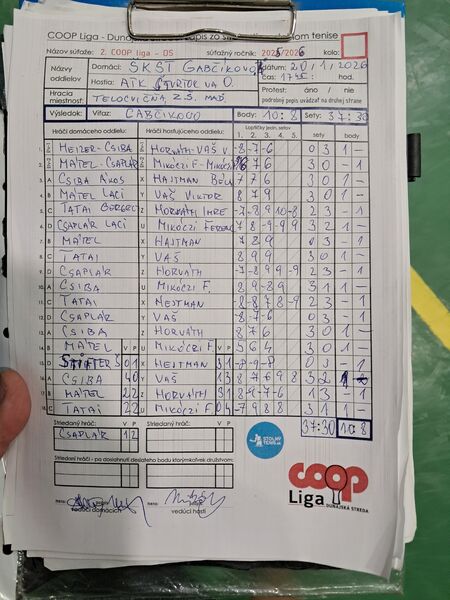 COOP Liga - Duna
pis zo s
om tenise
Názov súťaže: 2. COOP liga - DS súťažný ročník: 2025/2026 kolo:
Názov oddielov Domáci: ŠKST GABČÍKOVO dátum: 20/1/2026
Hostia: ATK ŠTVRTOK NA O. čas: hod.
Hracia miestnosť: TELOCVIČŇA Z.Š. MAĎ. Protest: áno / nie podrobný popis uvádzať na druhej strane
Výsledok: Víťaz: GABČIKOVO Body: 10:8 Sety: 37:30
Hráči domáceho oddielu: Hráči hosťujúceho oddielu: Loptičky jedn. setov 1. 2. 3. 4. 5. sety body
HEIZER-CSIBA HORVÁTH-VAŠ V -8-7-6 0 3 1 -
MÁTEL-CSAPLÁR MIKÓCZI F.-MIKÓCZI 7 6 3 0 - 1
3. A CSIBA ÁKOS X HAJTMAN BÉLA 7 7 6 3 0 1 -
4. B MÁTEL LACI Y VAŠ VIKTOR 8 7 9 3 0 1 -
5. C TATAI GERGEL Z HORVÁTH IMRE -7-8 9 10-8 2 3 - 1
6. D CSAPLÁR LACI U MIKÓCZI FERENC 7 8 -9-9 9 3 2 1 -
7. B MÁTEL X HAJTMAN 7 8 9 0 3 - 1
8. C TATAI Y VAŠ 8 9 9 3 0 1 -
9. D CSAPLÁR Z HORVÁTH -7-8 9 9 -9 2 3 - 1
10. A CSIBA U MIKÓCZI F. 8 9-8 9 3 1 1 -
11. C TATAI X HEJTMAN -8-8 7 8-9 2 3 - 1
12. D CSAPLÁR Y VAŠ -8-7-6 0 3 - 1
13. A CSIBA Z HORVÁTH 8 7 6 3 0 1 -
14. B MÁTEL V P U MIKÓCZI F. V P 5 6 4 3 0 1 -
15. D STIFTER Š 0 1 X HEJTMAN 3 1 -8-9-8 0 3 - 1
16. A CSIBA 4 0 Y VAŠ 1 3 8 7-6 9 8 3 2
17. B MÁTEL 2 2 Z HORVÁTH 3 1 8-9-7-6 1 3 - 1
18. C TATAI 2 2 U MIKÓCZI F. 0 4 -7 9 8 8 3 1 1 -
Striedaný hráč: V P Striedaný hráč: V P 37:30 10:8
CSAPLÁR 1 2
STOLNÝ TENIS
Striedaní hráči - po dosiahnutí desiateho bodu ktorýmkoľvek družstvom:
coop
Liga
DUNAJSKÁ STREDA
meno: meno:
vedúci domácich vedúci hostí